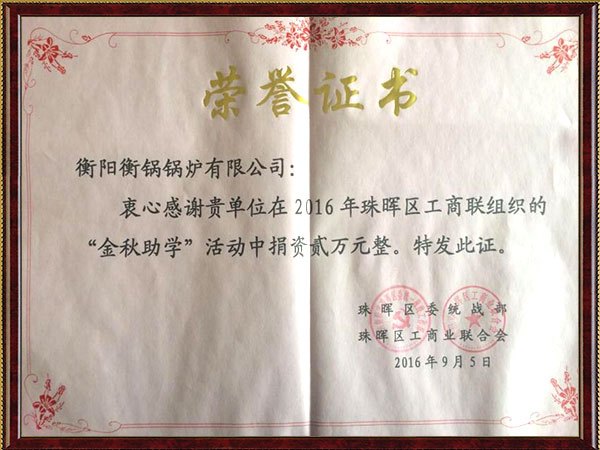 荣誉证书
衡阳衡锅锅炉有限公司：
衷心感谢贵单位在2016年珠晖区工商联组织的
“金秋助学”活动中捐资贰万元整。特发此证。
珠晖区委统战部
珠晖区工商业联合会
2016年9月5日